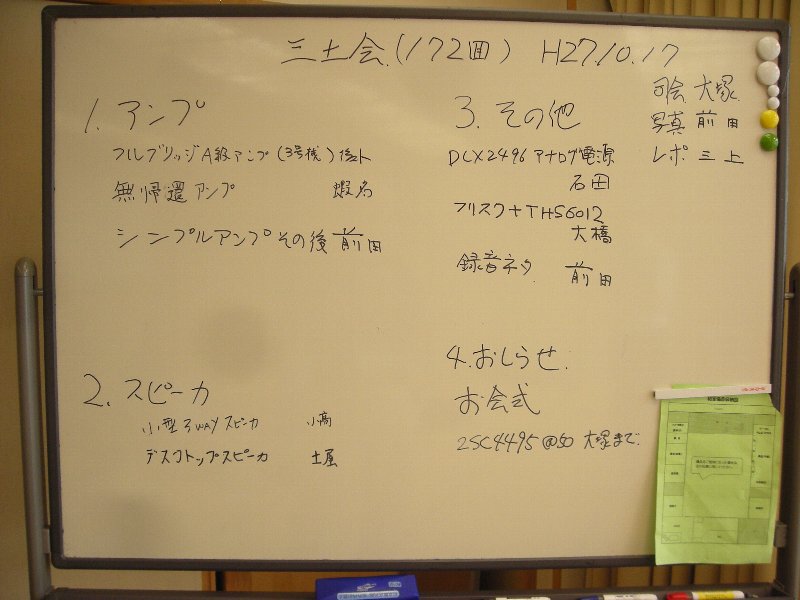 三土会(172回) H27.10.17
司会 大塚
写真 前田
レポ 三上
1. アンプ
フルブリッジA級アンプ(3号機) 後ト
無帰還アンプ 蝦名
シンプルアンプその後 前田
2. スピーカ
小型3WAYスピーカ 小高
デスクトップスピーカ 土屋
3. その他
DCX2496 アナログ電源
石田
フリスク+THS6012
大橋
録音ネタ 前田
4. おしらせ.
お会式
2SC4495 @50 大塚まで.